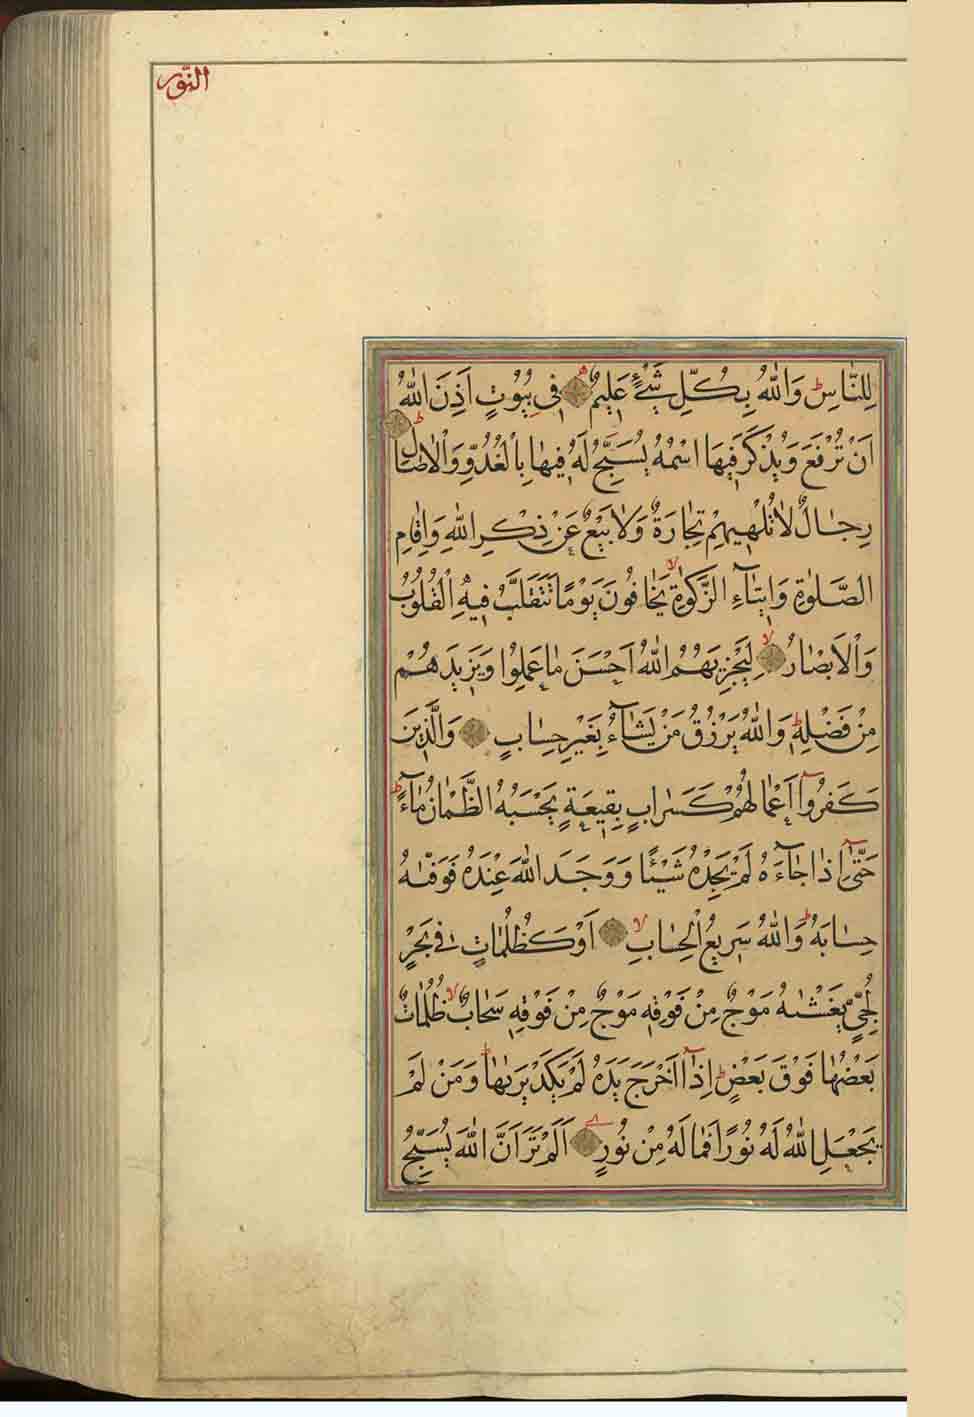 النّور
لِلنَّاسِ وَاللّٰهُ بِكُلِّ شَيْءٍ عَلِيمٌ فِي بُيُوتٍ اَذِنَ اللّٰهُ
اَنْ تُرْفَعَ وَيُذْكَرَ فِيهَا اسْمُهُ يُسَبِّحُ لَهُ فِيهَا بِالْغُدُوِّ وَالْاٰصَالِ
رِجَالٌ لَا تُلْهِيهِمْ تِجَارَةٌ وَلَا بَيْعٌ عَنْ ذِكْرِ اللّٰهِ وَاِقَامِ
الصَّلٰوةِ وَاِيتَاءِ الزَّكٰوةِ يَخَافُونَ يَوْمًا تَتَقَلَّبُ فِيهِ الْقُلُوبُ
وَالْاَبْصَارُ لِيَجْزِيَهُمُ اللّٰهُ اَحْسَنَ مَا عَمِلُوا وَيَزِيدَهُمْ
مِنْ فَضْلِهِ وَاللّٰهُ يَرْزُقُ مَنْ يَشَاءُ بِغَيْرِ حِسَابٍ وَالَّذِينَ
كَفَرُوا اَعْمَالُهُمْ كَسَرَابٍ بِقِيعَةٍ يَحْسَبُهُ الظَّمْاٰنُ مَاءً
حَتّٰى اِذَا جَاءَهُ لَمْ يَجِدْهُ شَيْئًا وَوَجَدَ اللّٰهَ عِنْدَهُ فَوَفّٰيهُ
حِسَابَهُ وَاللّٰهُ سَرِيعُ الْحِسَابِ اَوْ كَظُلُمَاتٍ فِي بَحْرٍ
لُجِّيٍّ يَغْشٰيهُ مَوْجٌ مِنْ فَوْقِهِ مَوْجٌ مِنْ فَوْقِهِ سَحَابٌ ظُلُمَاتٌ
بَعْضُهَا فَوْقَ بَعْضٍ اِذَا اَخْرَجَ يَدَهُ لَمْ يَكَدْ يَرٰيهَا وَمَنْ لَمْ
يَجْعَلِ اللّٰهُ لَهُ نُورًا فَمَا لَهُ مِنْ نُورٍ اَلَمْ تَرَ اَنَّ اللّٰهَ يُسَبِّحُ